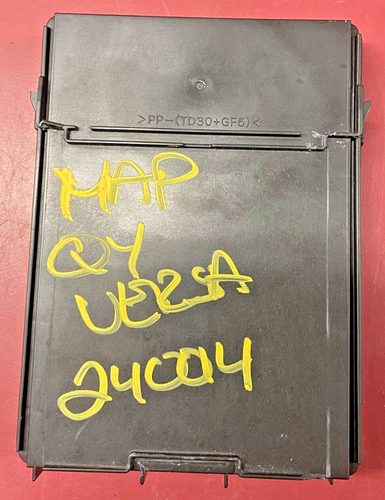 >PP-(TD30+GF5)<
MAP
QY
VERSA
24004